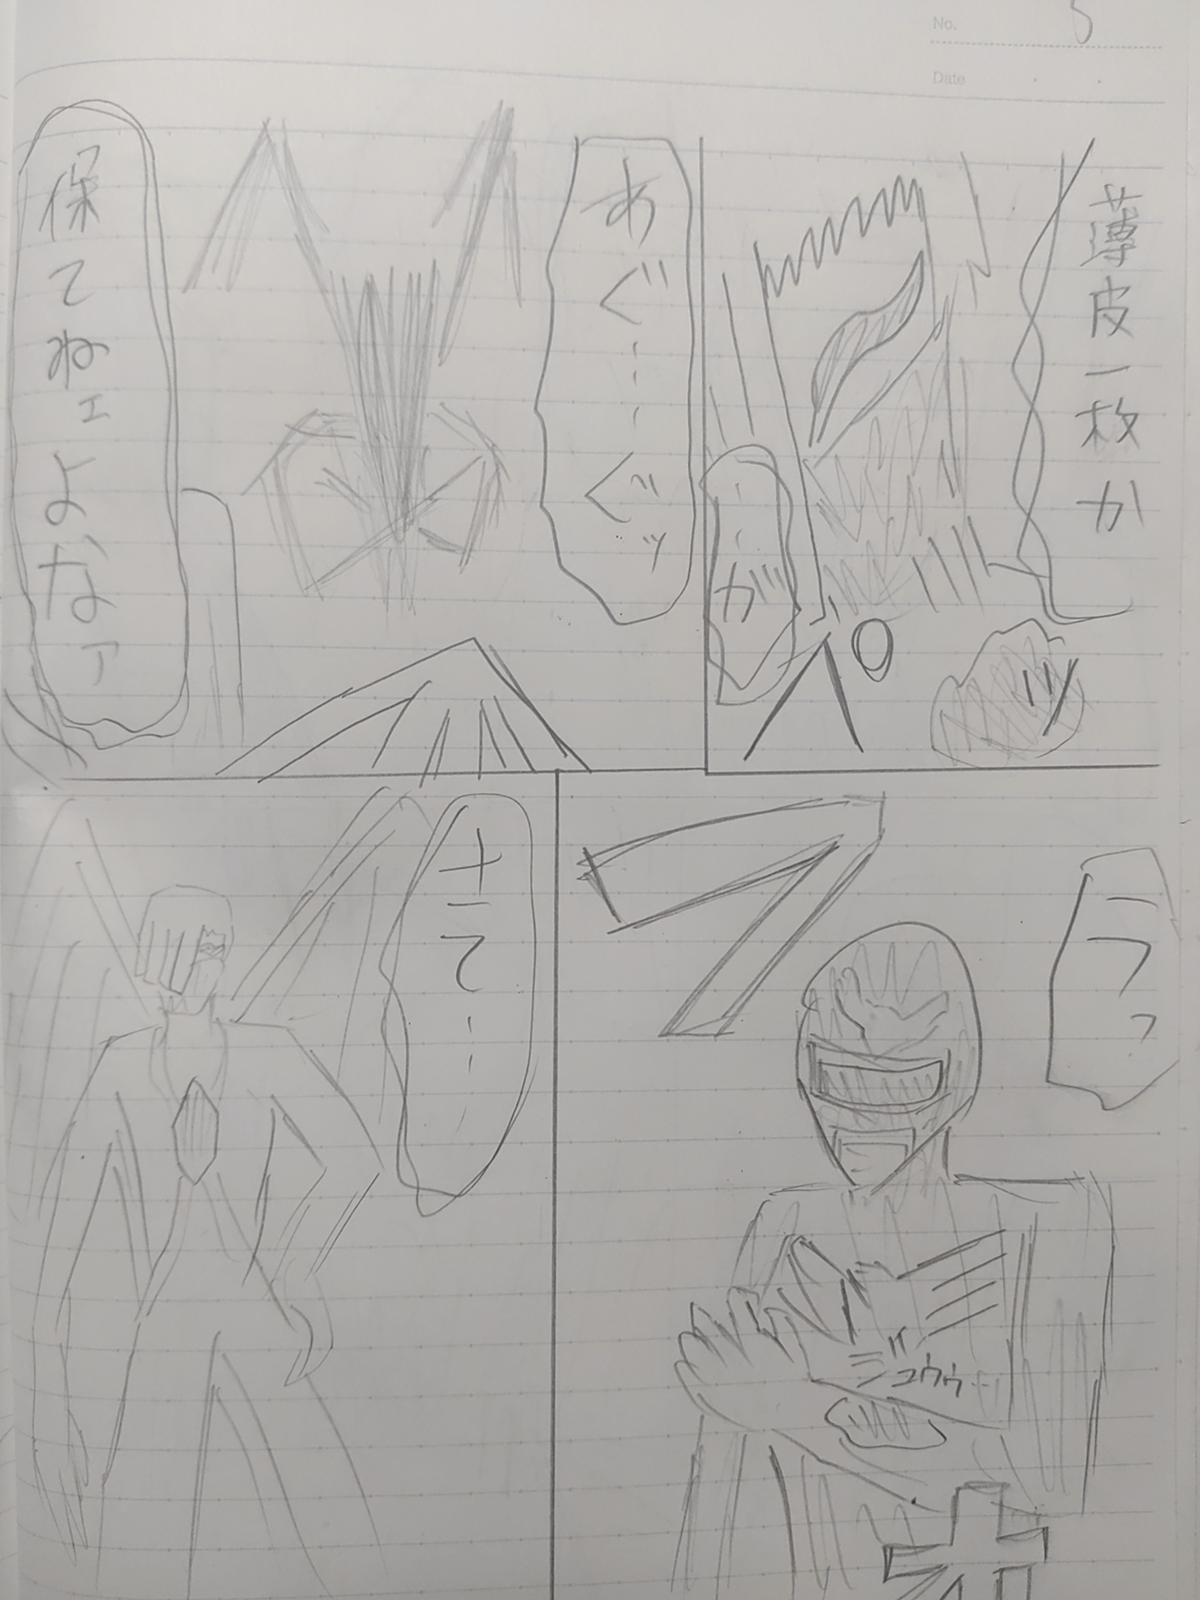 No. 5
Date
薄皮一枚か
ガッ
あぐ……ぐッ
保てねェよなァ
フッ
フ
ジュウゥ
さて……